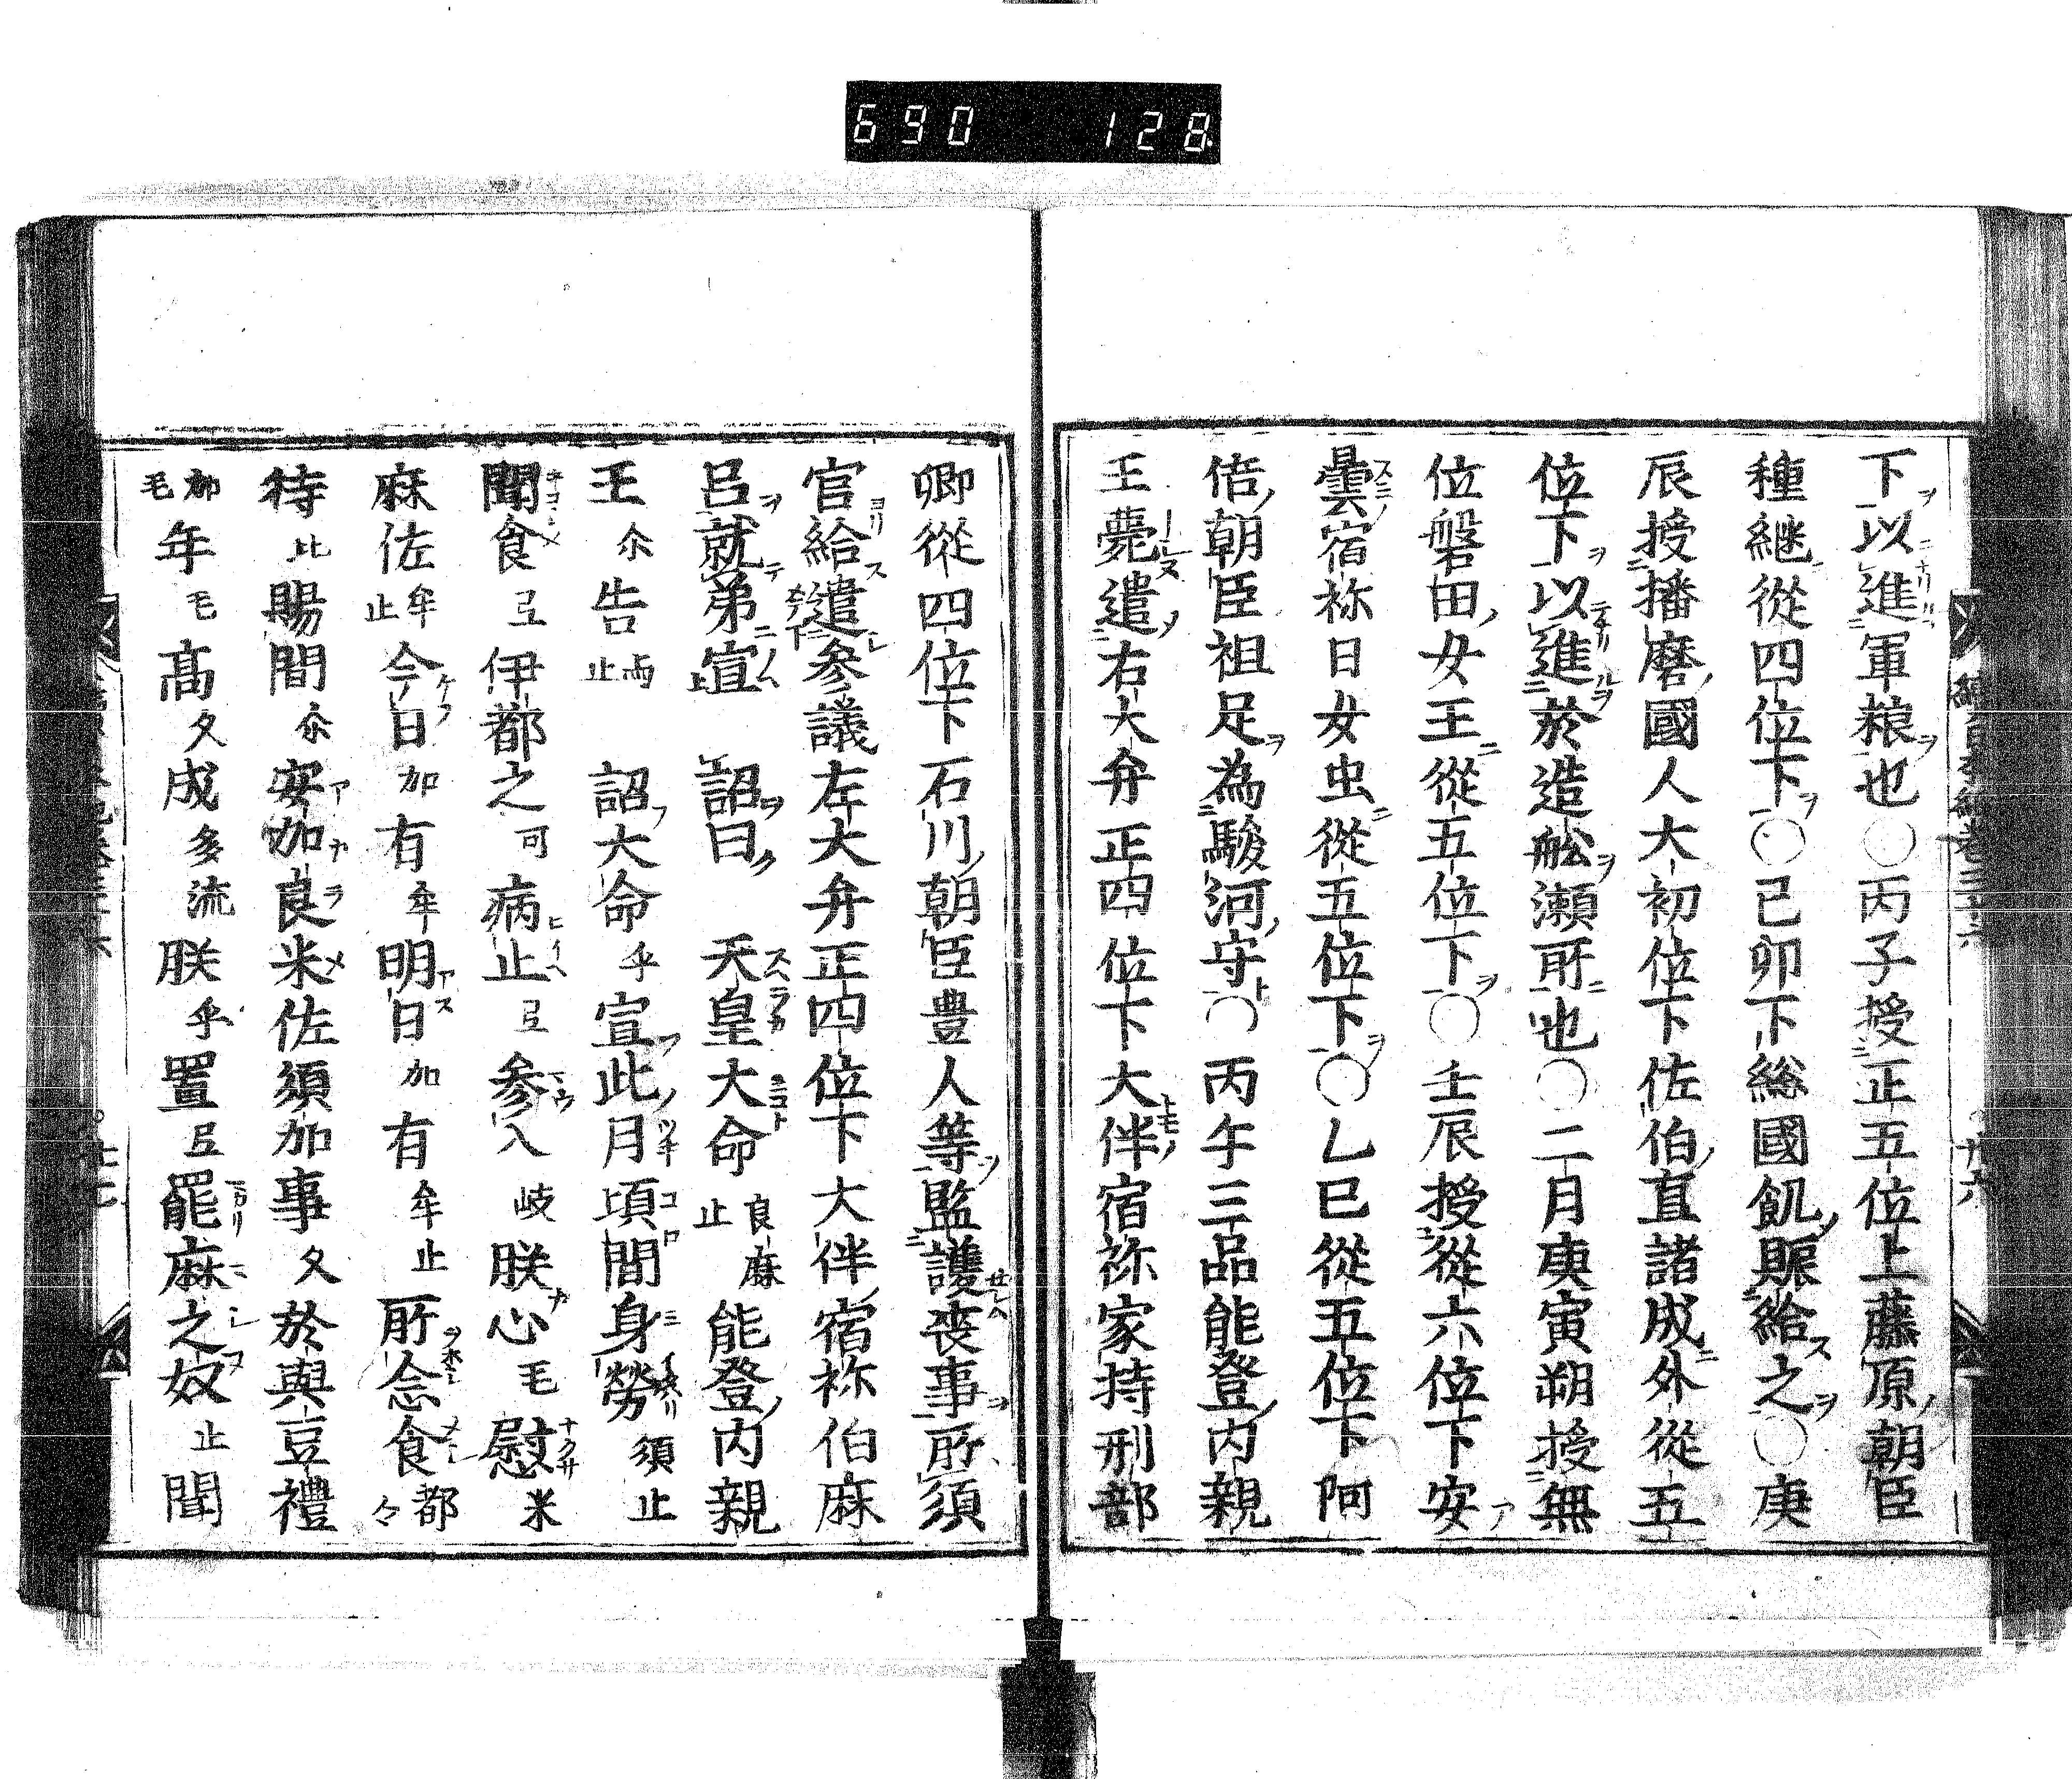 690 128
下以進軍粮也○丙子授正五位上藤原朝臣
種継從四位下○己卯下総國飢賑給之○庚
辰授播磨國人大初位下佐伯直諸成外從五
位下以進於造舩瀬所也○二月庚寅朔授無
位磐田女王從五位下○壬辰授從六位下安
曇宿祢日女虫從五位下○乙巳從五位下阿
倍朝臣祖足為駿河守○丙午三品能登内親
王薨遣右大弁正四位下大伴宿祢家持刑部
卿從四位下石川朝臣豊人等監護喪事所須
官給遣参議左大弁正四位下大伴宿祢伯麻
呂就弟宣 詔曰 天皇大命良麻止能登内親
王尒告与止 詔大命乎宣此月頃間身勞須止
聞食弖伊都之可病止弖参入岐朕心毛慰米
麻佐牟止今日加有牟明日加有牟止所念食都々
待比賜間尒安加良米佐須加事久於與豆禮
加毛年毛高久成多流朕乎置弖罷麻之奴止聞